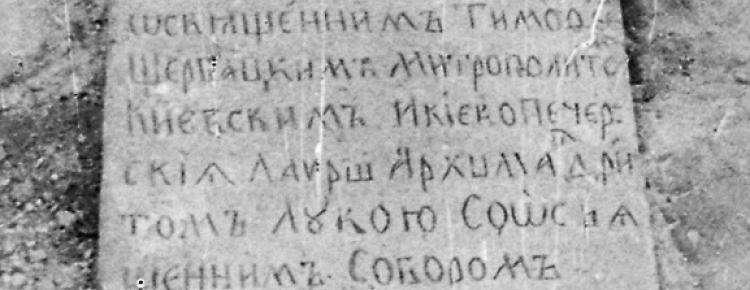 ѡсвящѐннимъ Тимоѳ
Щербацкимъ Митрополито
Киевскимъ и кіево Печер
скія Лавры Архимадри
томъ Лукою Соѡсвя
щеннимъ Соборомъ